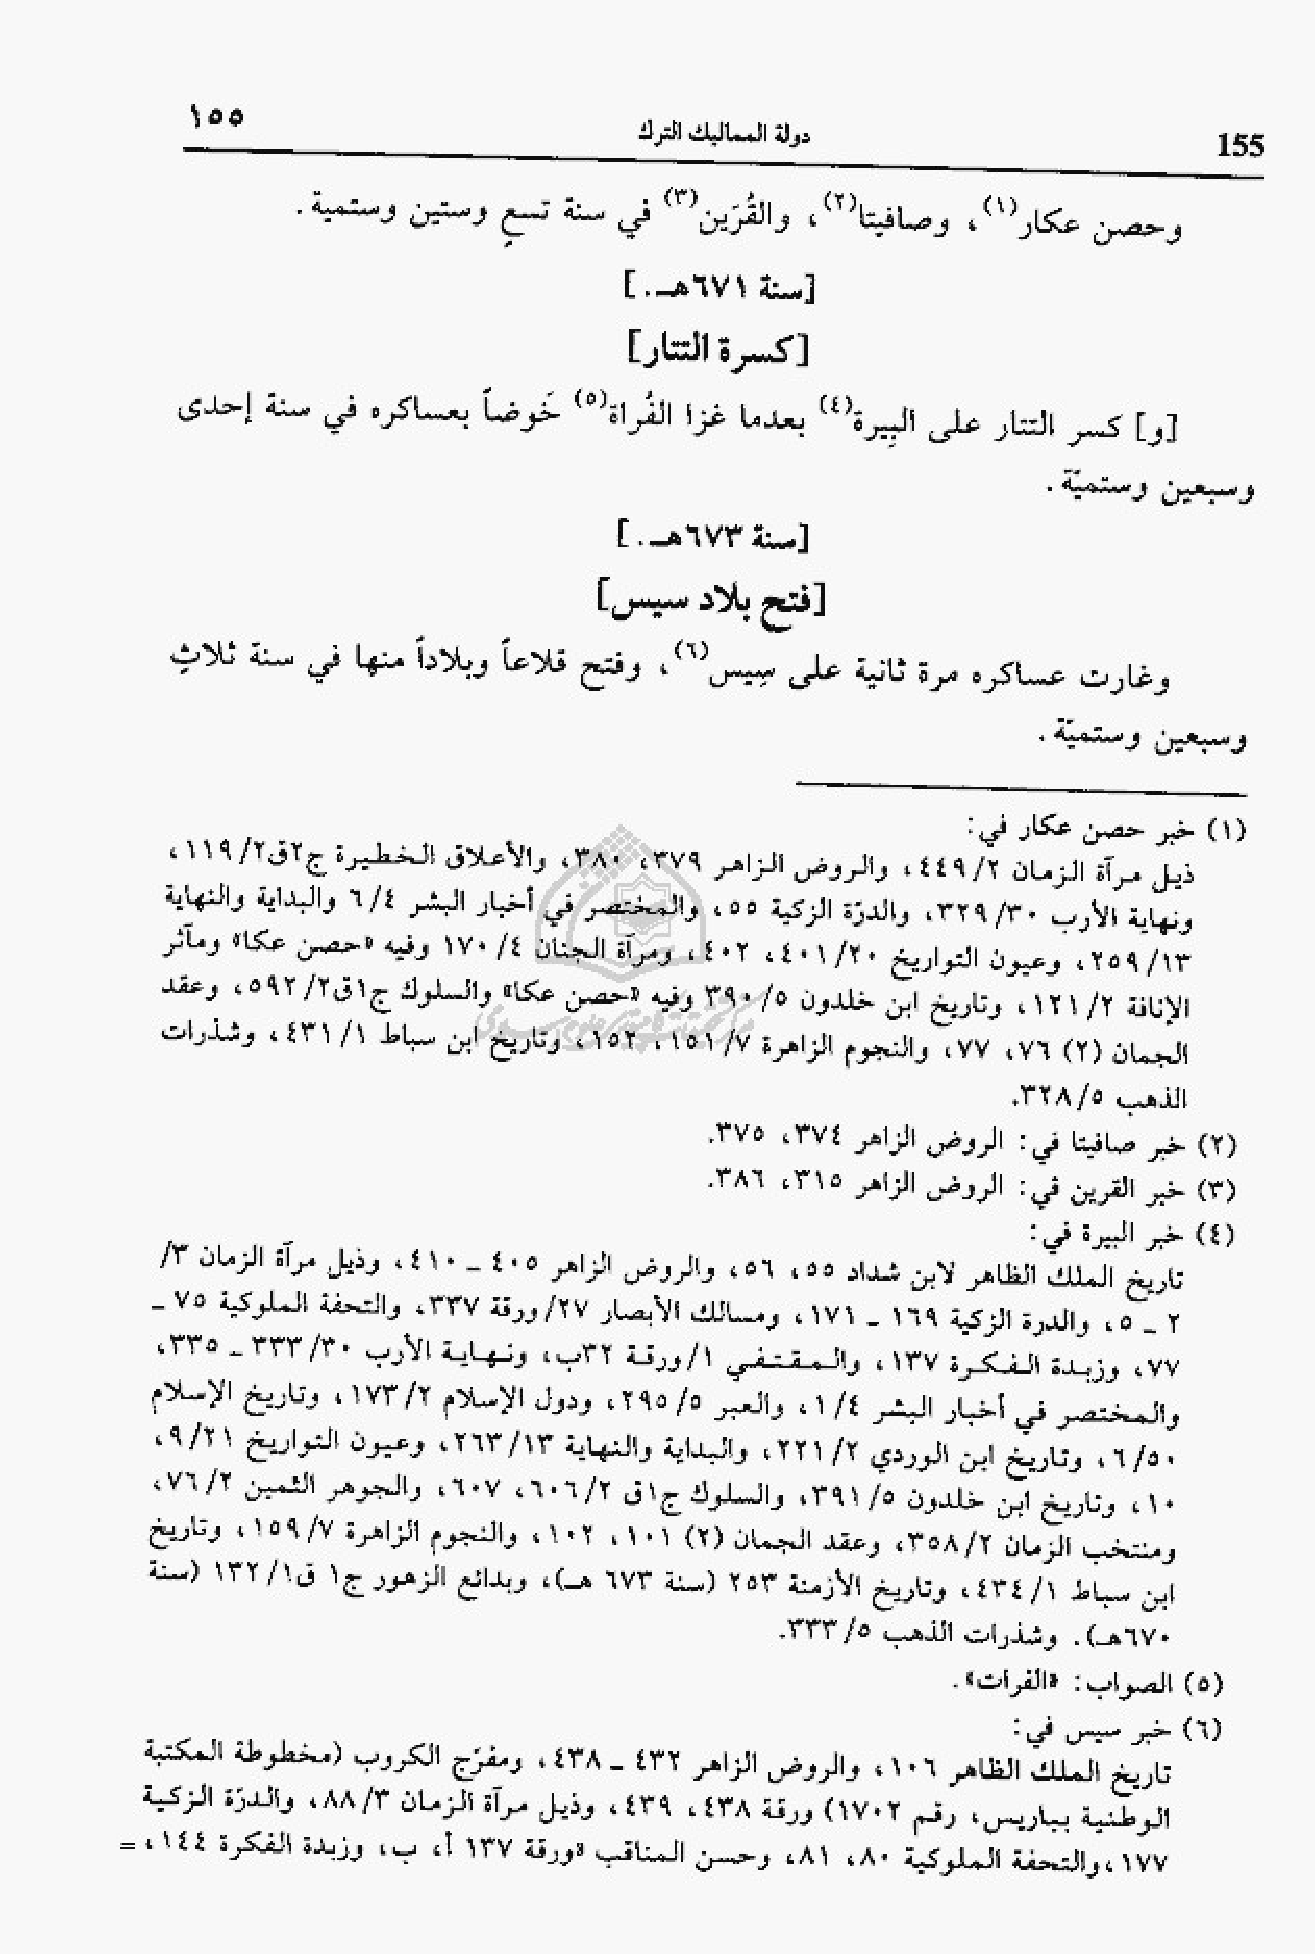 155 دولة المماليك الترك ١٥٥
وحصن عكار(١)، وصافيتا(٢)، والقُرَين(٣) في سنة تسعٍ وستين وستمية.
[سنة ٦٧١هـ.]
[كسرة التتار]
[و] كسر التتار على البِيرة(٤) بعدما غزا الفُراة(٥) خَوضاً بعساكره في سنة إحدى
وسبعين وستميّة.
[سنة ٦٧٣هـ.]
[فتح بلاد سيس]
وغارت عساكره مرة ثانية على سِيس(٦)، وفتح قلاعاً وبلاداً منها في سنة ثلاثِ
وسبعين وستميّة.
(١) خبر حصن عكار في:
ذيل مرآة الزمان ٢/ ٤٤٩، والروض الزاهر ٣٧٩، ٣٨٠، والأعلاق الخطيرة ج٢ق٢/ ١١٩،
ونهاية الأرب ٣٠/ ٣٢٩، والدرّة الزكية ٥٥، والمختصر في أخبار البشر ٤/ ٦ والبداية والنهاية
١٣/ ٢٥٩، وعيون التواريخ ٢٠/ ٤٠١، ٤٠٢، ومرآة الجنان ٤/ ١٧٠ وفيه «حصن عكا» ومآثر
الإنافة ٢/ ١٢١، وتاريخ ابن خلدون ٥/ ٣٩٠ وفيه «حصن عكا» والسلوك ج١ق٢/ ٥٩٢، وعقد
الجمان (٢) ٧٦، ٧٧، والنجوم الزاهرة ٧/ ١٥١، ١٥٢، وتاريخ ابن سباط ١/ ٤٣١، وشذرات
الذهب ٥/ ٣٢٨.
(٢) خبر صافيتا في: الروض الزاهر ٣٧٤، ٣٧٥.
(٣) خبر القرين في: الروض الزاهر ٣١٥، ٣٨٦.
(٤) خبر البيرة في:
تاريخ الملك الظاهر لابن شداد ٥٥، ٥٦، والروض الزاهر ٤٠٥ ـ ٤١٠، وذيل مرآة الزمان ٣/
٢ ـ ٥، والدرة الزكية ١٦٩ ـ ١٧١، ومسالك الأبصار ٢٧/ ورقة ٣٣٧، والتحفة الملوكية ٧٥ ـ
٧٧، وزبدة الفكرة ١٣٧، والمقتفي ١/ ورقة ٣٢ب، ونهاية الأرب ٣٠/ ٣٣٣ ـ ٣٣٥،
والمختصر في أخبار البشر ٤/ ١، والعبر ٥/ ٢٩٥، ودول الإسلام ٢/ ١٧٣، وتاريخ الإسلام
٥٠/ ٦، وتاريخ ابن الوردي ٢/ ٢٢١، والبداية والنهاية ١٣/ ٢٦٣، وعيون التواريخ ٢١/ ٩،
١٠، وتاريخ ابن خلدون ٥/ ٣٩١، والسلوك ج١ق ٢/ ٦٠٦، ٦٠٧، والجوهر الثمين ٢/ ٧٦،
ومنتخب الزمان ٢/ ٣٥٨، وعقد الجمان (٢) ١٠١، ١٠٢، والنجوم الزاهرة ٧/ ١٥٩، وتاريخ
ابن سباط ١/ ٤٣٤، وتاريخ الأزمنة ٢٥٣ (سنة ٦٧٣ هـ)، وبدائع الزهور ج١ ق١/ ١٣٢ (سنة
٦٧٠هـ). وشذرات الذهب ٥/ ٣٣٣.
(٥) الصواب: «الفرات».
(٦) خبر سيس في:
تاريخ الملك الظاهر ١٠٦، والروض الزاهر ٤٣٢ ـ ٤٣٨، ومفرّج الكروب (مخطوطة المكتبة
الوطنية بباريس، رقم ١٧٠٢) ورقة ٤٣٨، ٤٣٩، وذيل مرآة الزمان ٣/ ٨٨، والدرّة الزكية
١٧٧، والتحفة الملوكية ٨٠، ٨١، وحسن المناقب «ورقة ١٣٧ أ، ب، وزبدة الفكرة ١٤٤، =